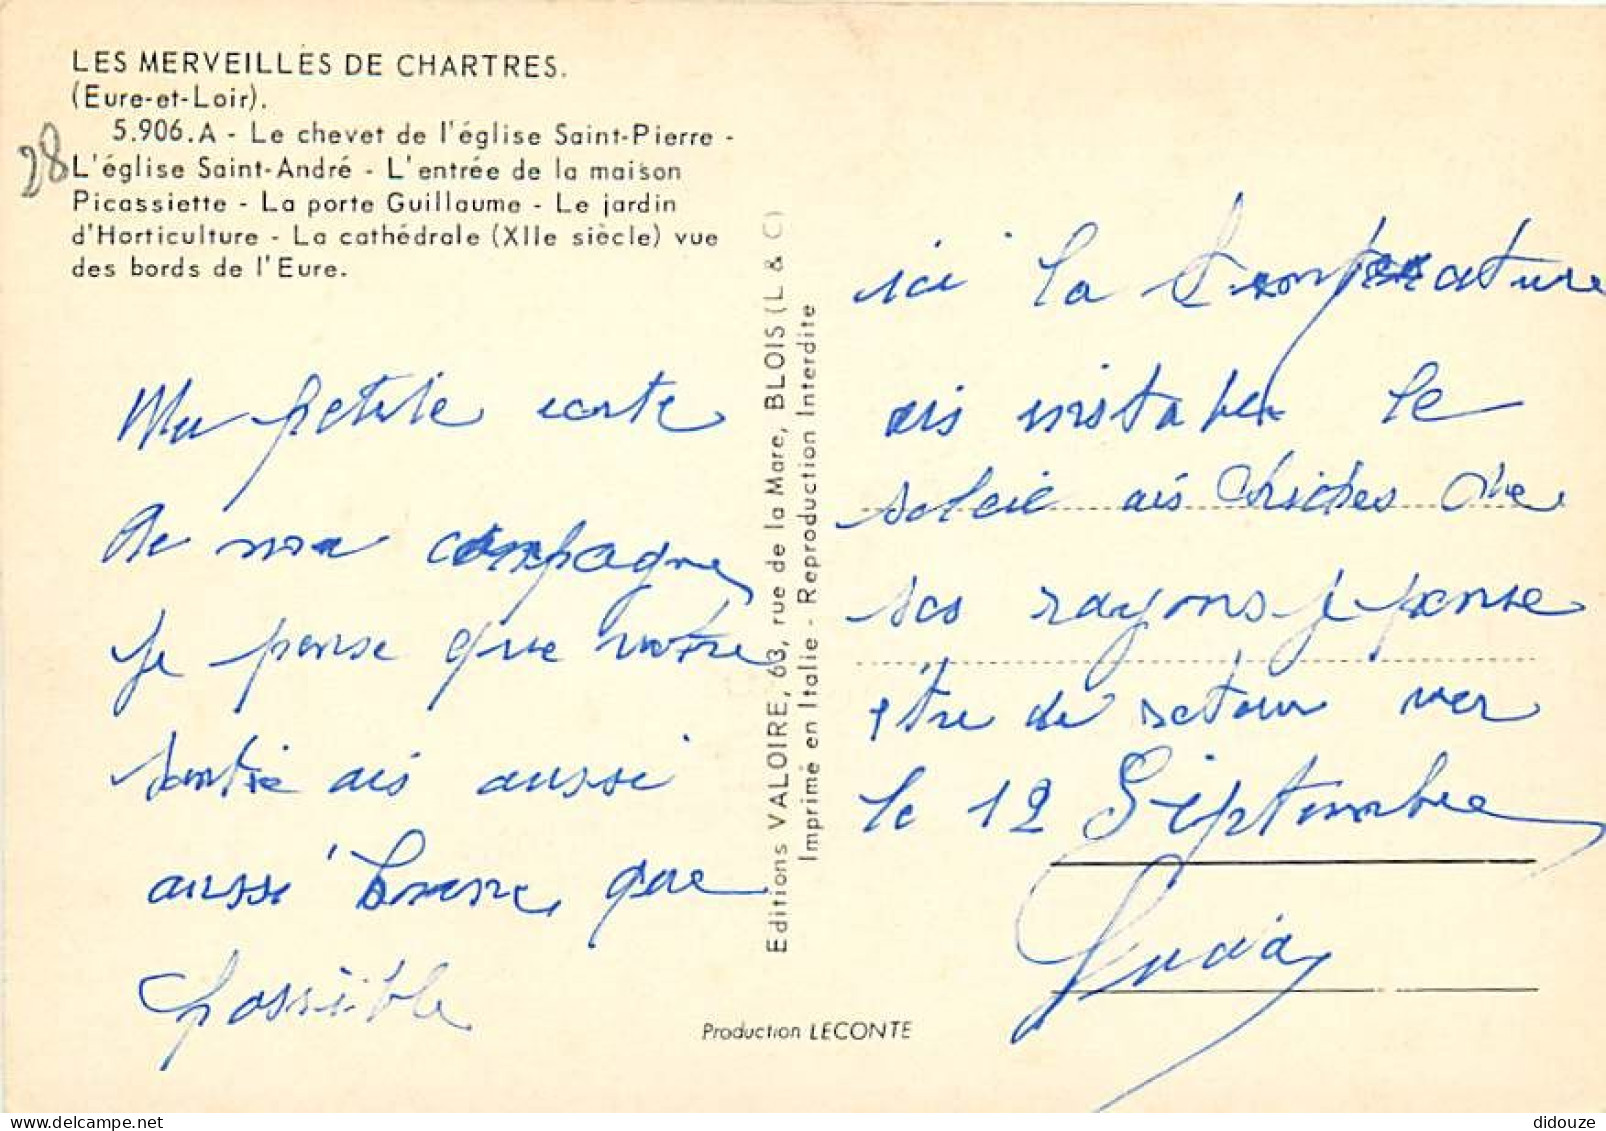 LES MERVEILLES DE CHARTRES.
(Eure-et-Loir).
5.906.A - Le chevet de l'église Saint-Pierre -
L'église Saint-André - L'entrée de la maison
Picassiette - La porte Guillaume - Le jardin
d'Horticulture - La cathédrale (XIIe siècle) vue
des bords de l'Eure.
28
Ma petite carte
de ma campagne
je pense que votre
santie ais aussi
aussi bonne que
possible
Editions VALOIRE, 63, rue de la Mare, BLOIS (L & C)
Imprimé en Italie - Reproduction Interdite
ici la température
ais instable le
soleil ais chiches de
ses rayons je pense
être de retour ver
le 12 Septembre
Production LECONTE
didouze